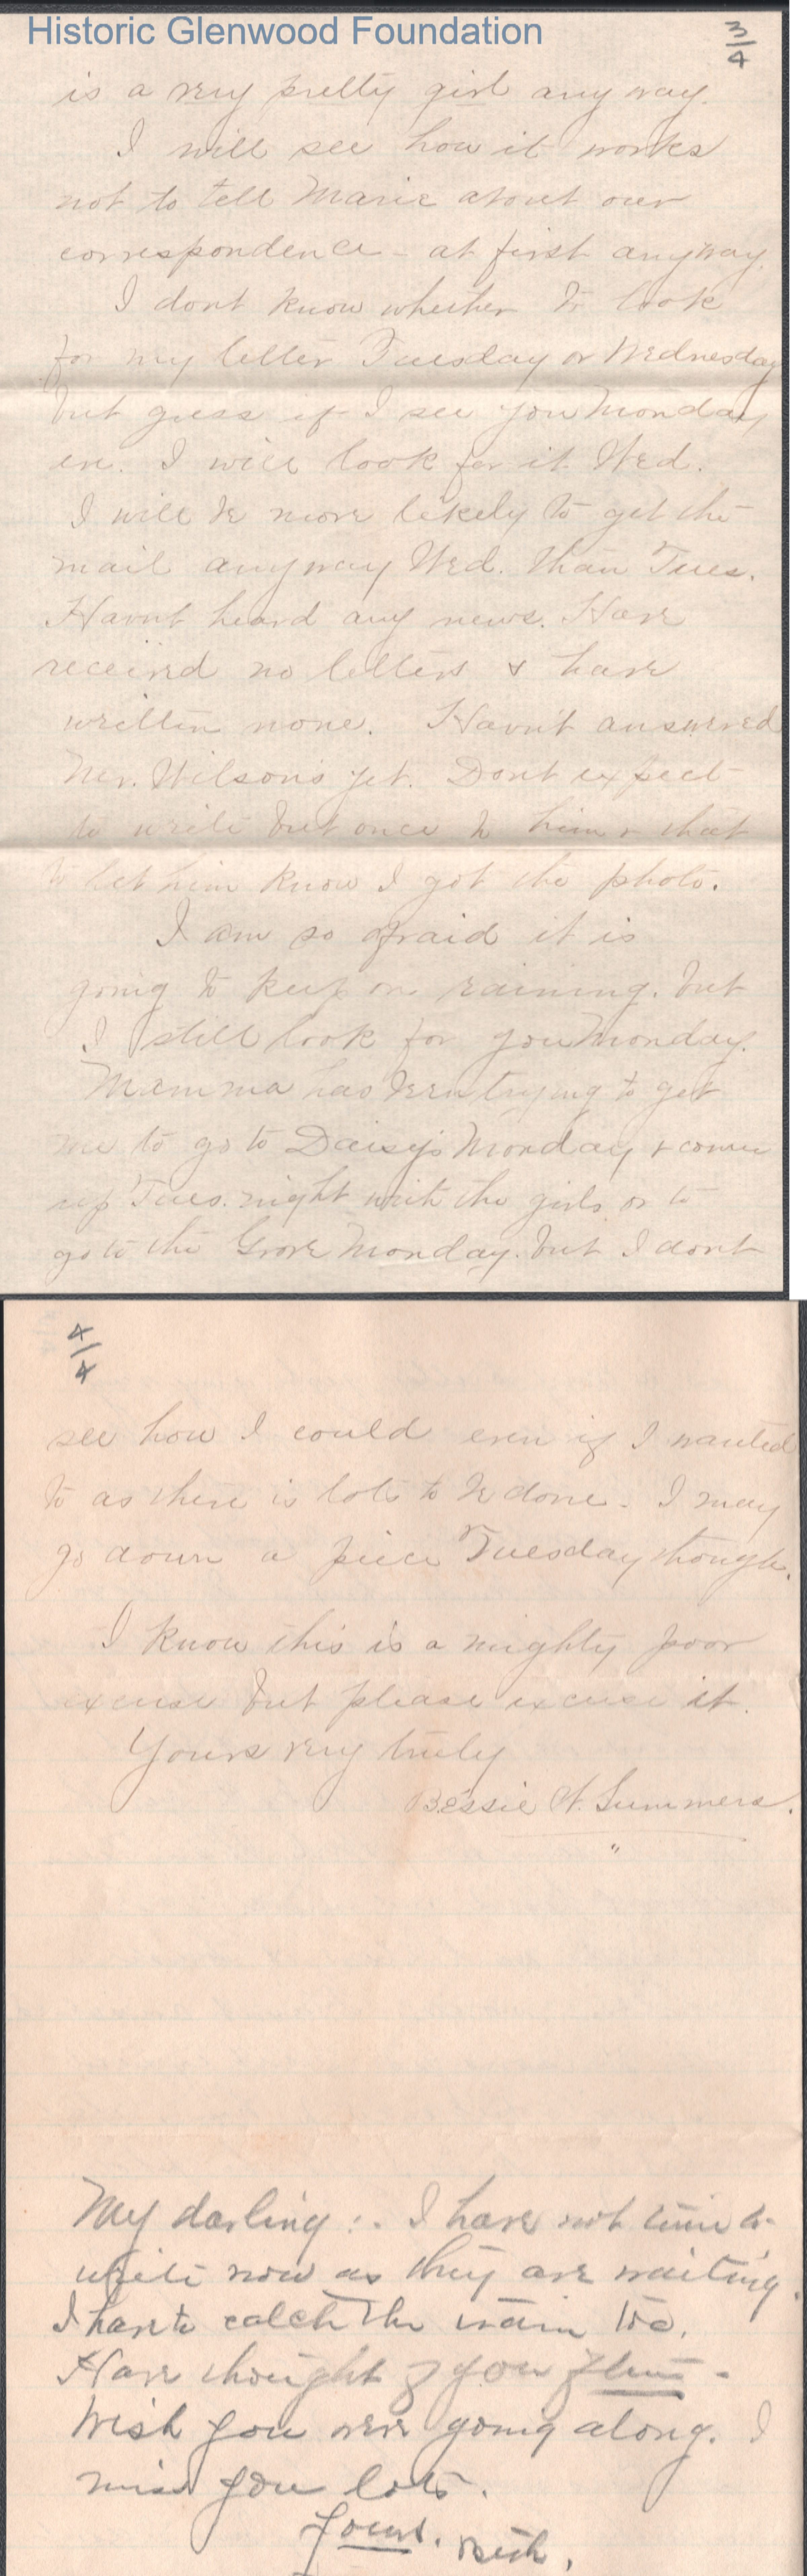 Historic Glenwood Foundation
3/4
is a very pretty girl any way.
I will see how it works
not to tell Marie about our
correspondence - at first anyway.
I dont know whether to look
for my letter Tuesday or Wednesday
but guess if I see you Monday
eve. I will look for it Wed.
I will be more likely to get the
mail anyway Wed. than Tues.
Havnt heard any news. Have
received no letters & have
written none. Havn't answered
Mr. Wilson's yet. Dont expect
to write but once to him & that
to let him know I got the photo.
I am so afraid it is
going to keep on raining. but
I still look for you Monday.
Mamma has been trying to get
me to go to Daisy's Monday & come
up Tues. night with the girls or to
go to the Grove Monday. but I dont
4/4
see how I could even if I wanted
to as there is lots to be done. I may
go down a piece Tuesday though.
I know this is a mighty poor
excuse but please excuse it.
Yours very truly
Bessie N. Summers.
My darling :- I have not time to
write now as they are waiting.
I have to catch the train too.
Have thought of you
Wish you were going along. I
miss you lots.
Yours. Besh.